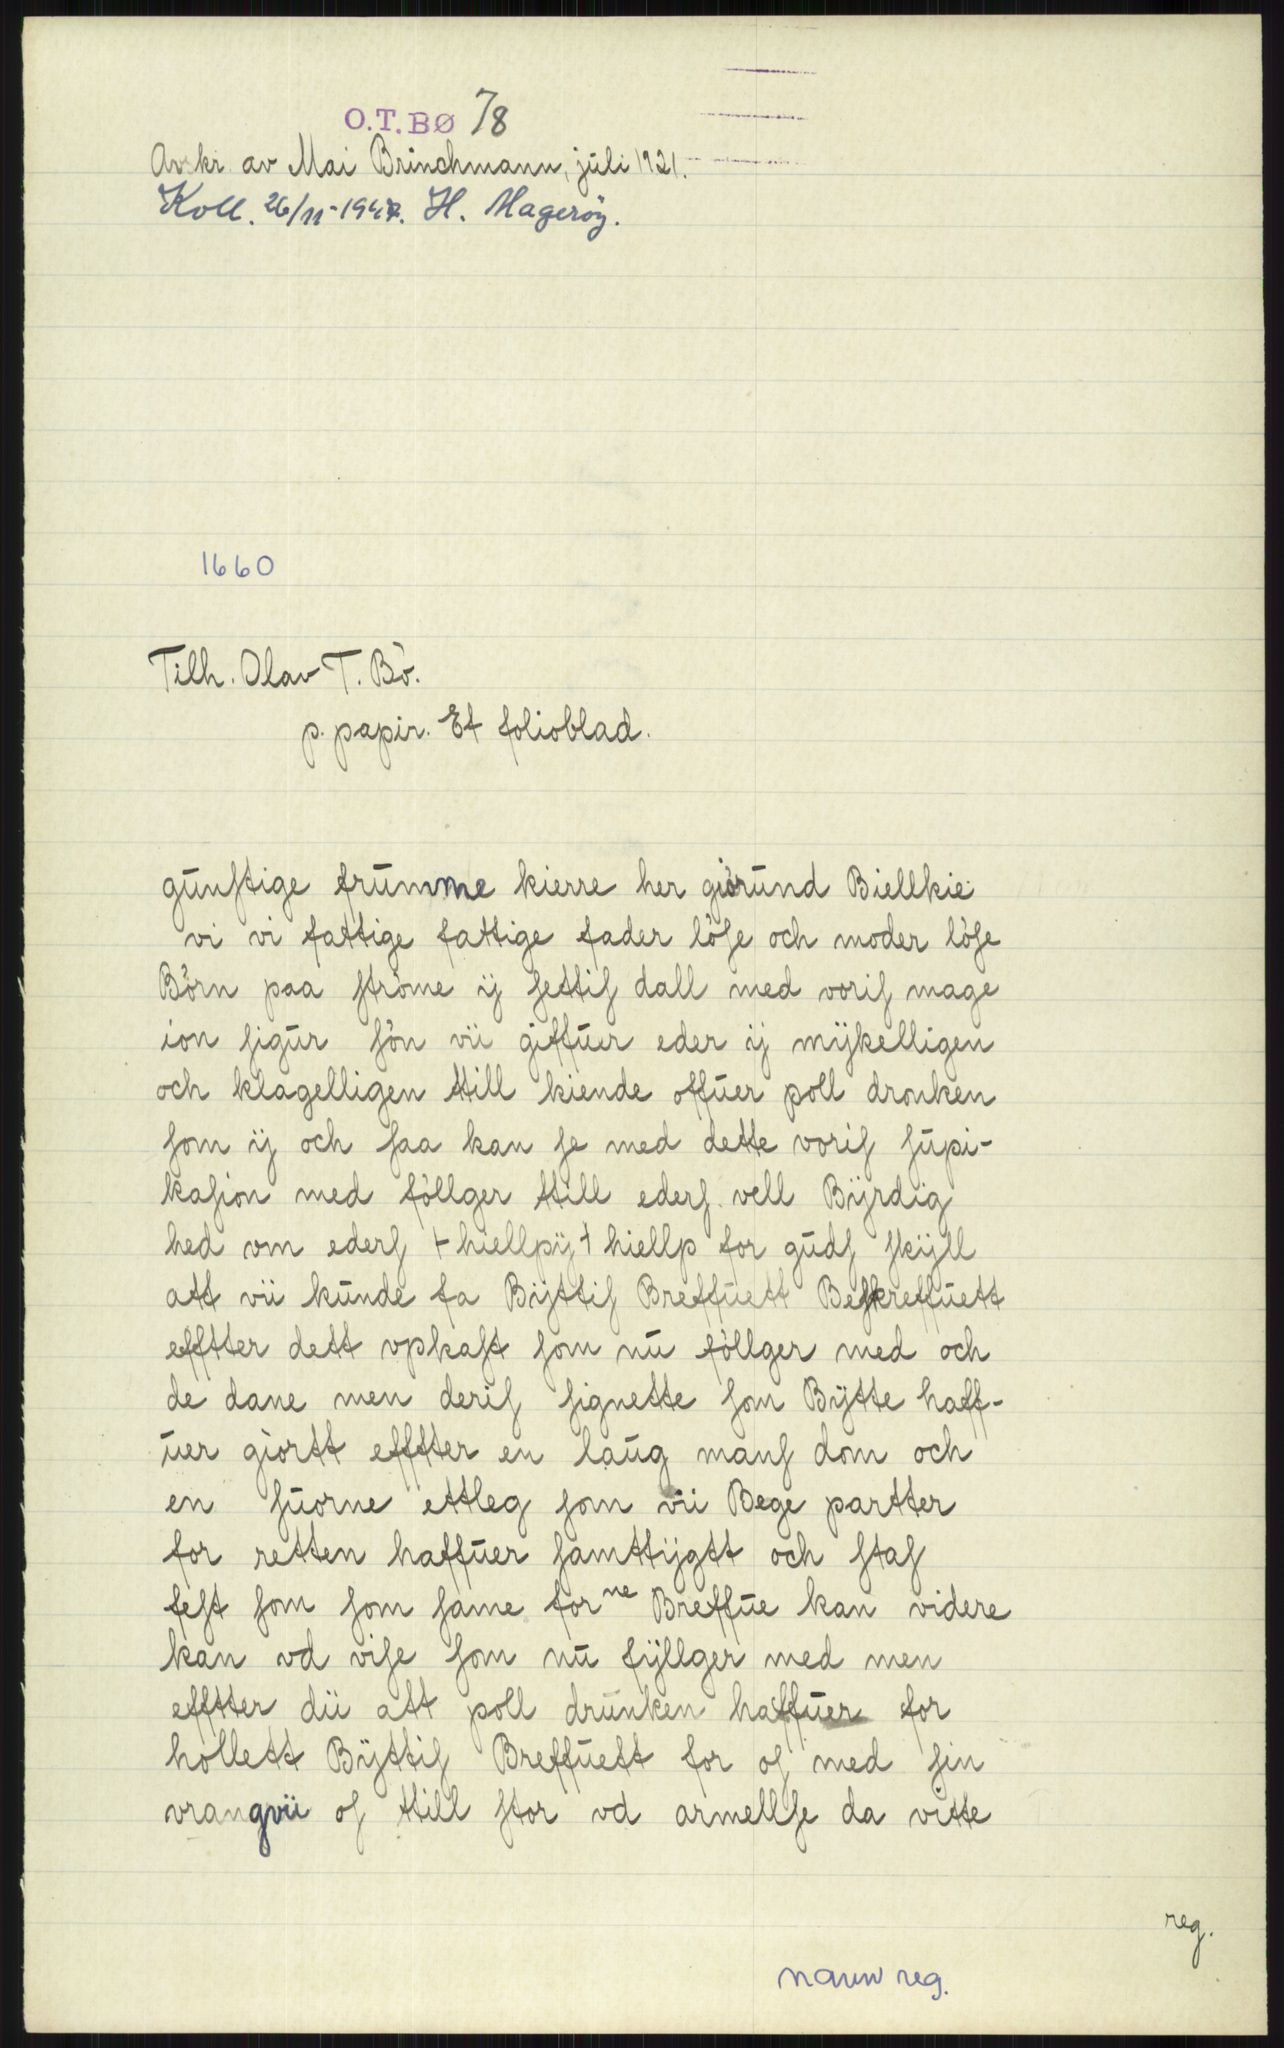 O.T.BØ 78
Avskr. av Mai Brinchmann, juli 1921.
Koll. 26/11-1947. H. Magerøy.
1660
Tilh. Olav T. Bö.
p. papir. Et folioblad.
gunſtige frumme kierre her giörund Biellkie
vi vi fattige fattige fader löſe och moder löſe
Börn paa ſtröme ÿ ſettiſ dall med voriſ mage
ion ſigur ſön vii giffuer eder ÿ mÿkelligen
och klagelligen ttill kiende offuer poll dronken
ſom ÿ och ſaa kan ſe med dette voriſ ſupi-
kaſion med föllger ttill ederſ vell Bÿrdig
hed om ederſ + hiellpÿ + hiellp for gudſ ſkÿll
att vii kunde fa Bÿttiſ Breffuett Beſkreffuett
efftter dett opkaſt ſom nu föllger med och
de dane men deriſ ſignette ſom Bÿtte haff-
uer giortt efftter en laug manſ dom och
en ſuorne ettleg ſom vii Bege partter
for retten haffuer ſamttÿgtt och ſtaſ
feſt ſom ſom ſame forne Breffue kan videre
kan vd viſe ſom nu fÿllger med men
efftter dü att poll drunken haffuer for
hollett Bÿttiſ Breffuett for oſ med ſin
vrangvii oſ ttill ſtor vd armellſe da vitte
reg.
navn reg.